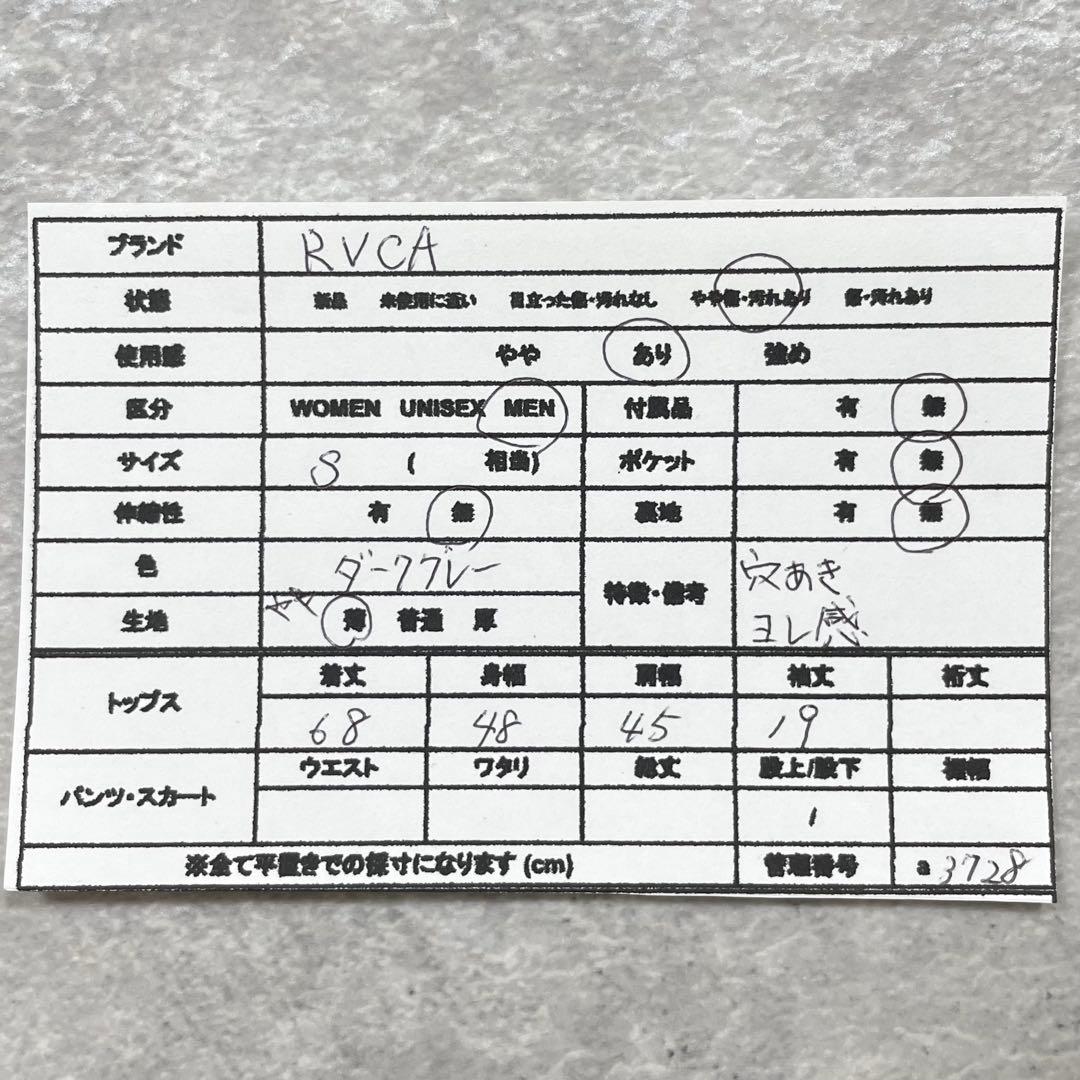 ブランド RVCA
状態 新品 未使用に近い 目立った傷・汚れなし やや傷・汚れあり 傷・汚れあり
使用感 やや あり 強め
区分 WOMEN UNISEX MEN 付属品 有 無
サイズ S ( 相当) ポケット 有 無
伸縮性 有 無 裏地 有 無
色 ダークグレー 特徴・備考 穴あき
生地 やや 薄 普通 厚 ヨレ感
トップス 着丈 身幅 肩幅 袖丈 裄丈
68 48 45 19
パンツ・スカート ウエスト ワタリ 総丈 股上/股下 裾幅
/
※全て平置きでの採寸になります(cm) 管理番号 a 3728